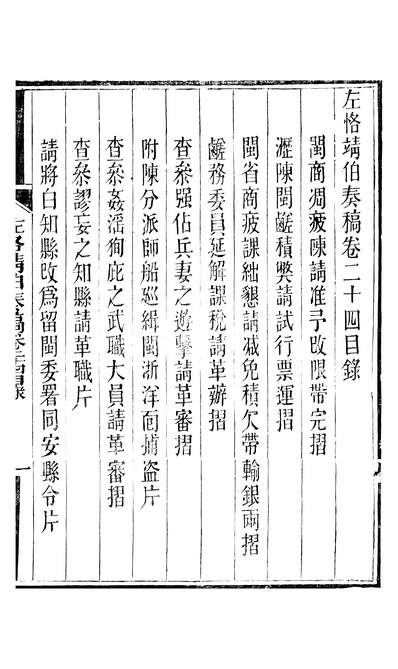 左恪靖伯奏稿卷二十四目錄
閩商凋疲陳請准予改限帶完摺
瀝陳閩鹺積獘請試行票運摺
閩省商疲課絀懇請減免積欠帶輸銀兩摺
鹺務委員延解課稅請革辦摺
查叅强佔兵妻之遊擊請革審摺
附陳分派師船廵緝閩浙洋面捕盜片
查叅姦淫徇庇之武職大員請革審摺
查叅謬妄之知縣請革職片
請將白知縣改爲留閩委署同安縣令片
左恪靖伯奏稿卷二十四目錄
一